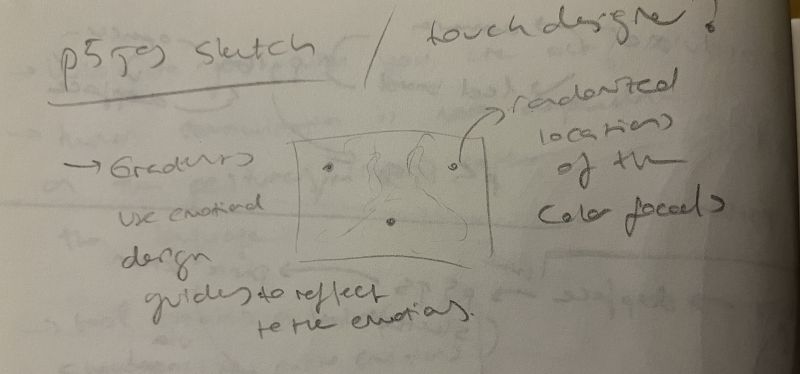 p5js sketch / touch designer?
→ Gradients
use emotional
design
guides to reflect
to the emotions.
randomized
locations
of the
color focals